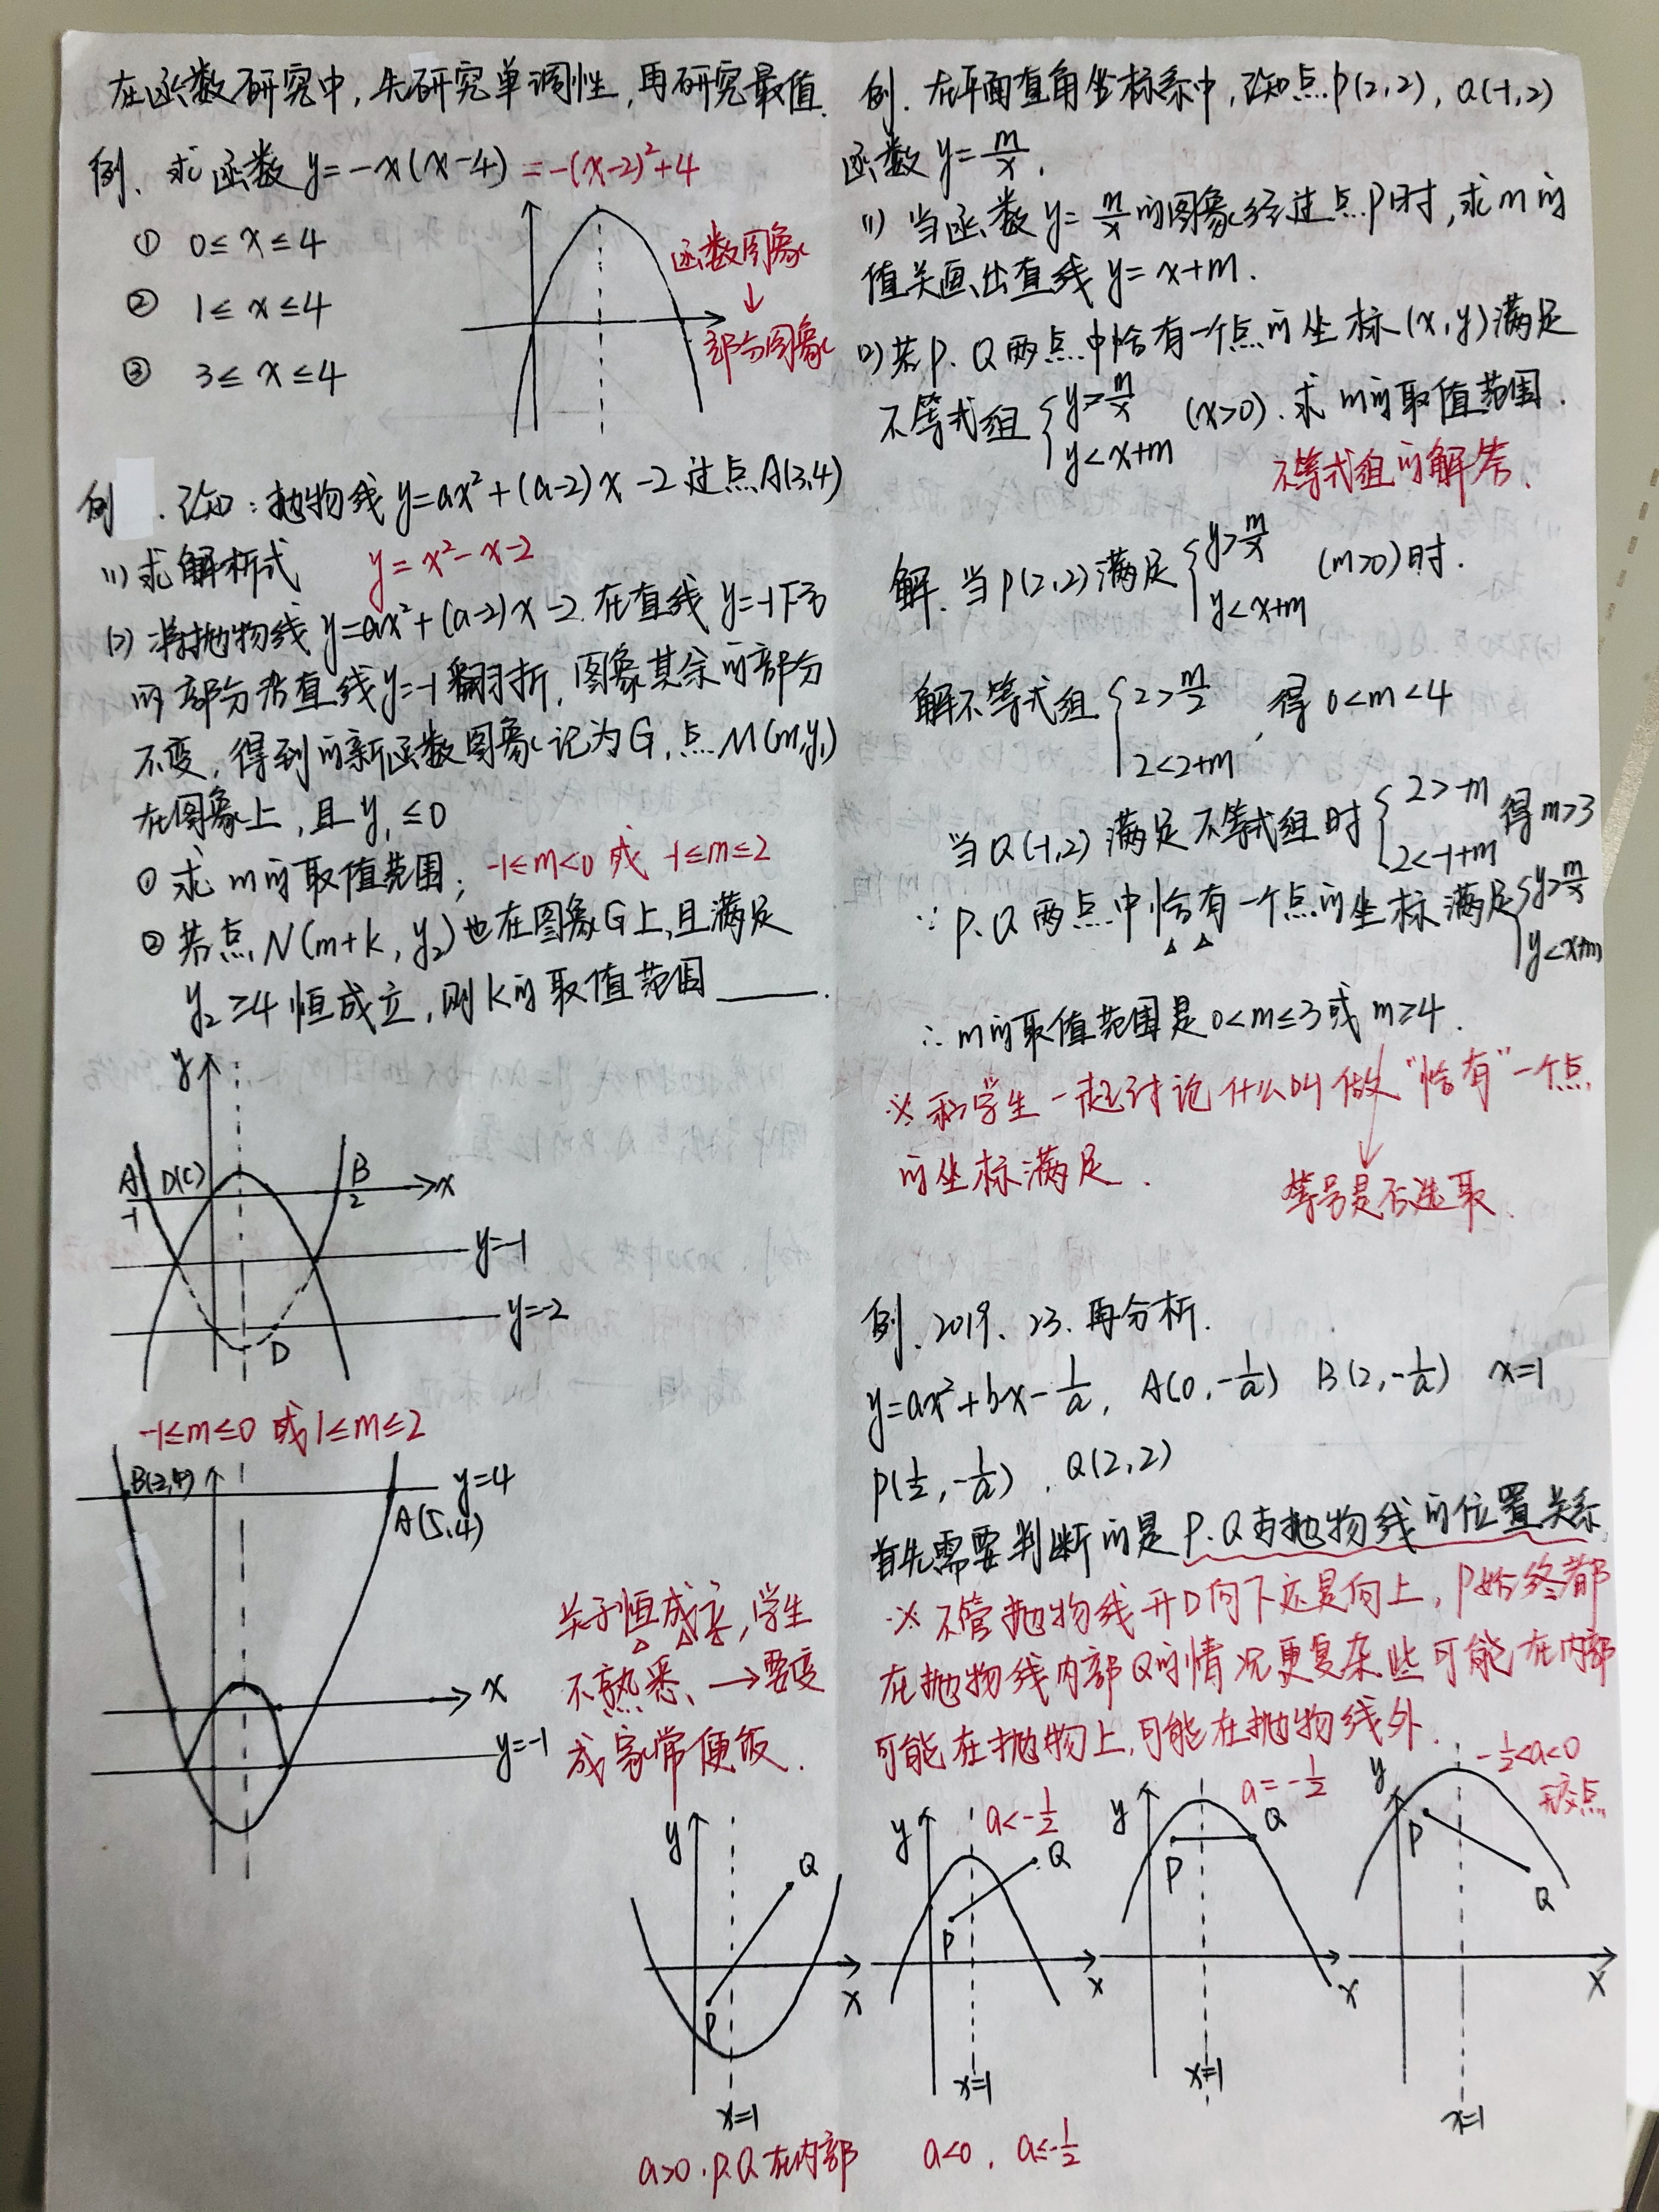 在函数研究中，先研究单调性，再研究最值.
例、求函数 y=-x(x-4) =-(x-2)²+4
① 0≤x≤4
② 1≤x≤4
③ 3≤x≤4
函数图象
↓
部分图象
例 . 已知：抛物线 y=ax²+(a-2)x-2 过点 A(3,4)
(1) 求解析式 y=x²-x-2
(2) 将抛物线 y=ax²+(a-2)x-2 在直线 y=-1下方
的部分沿直线 y=-1 翻折，图象其余的部分
不变，得到的新函数图象记为G，点 M(m,y₁)
在图象上，且 y₁≤0
① 求 m的取值范围； -1≤m<0 或 -1≤m≤2
② 若点 N(m+k, y₂) 也在图象G上，且满足
y₂≥4 恒成立，则 k的取值范围 ____.
y
A D(C) B x
-1 2
y=-1
y=-2
D
-1≤m≤0 或 1≤m≤2
y=4
A(5,4)
x
y=-1
关于恒成立，学生
不熟悉、→要变
成家常便饭.
例. 在平面直角坐标系中，已知点 P(2,2)，Q(-1,2)
函数 y=m/x.
(1) 当函数 y=m/x 的图象经过点P时，求 m的
值并画出直线 y=x+m.
(2) 若P、Q两点中恰有一个点的坐标(x,y)满足
不等式组 { y>m/x y<x+m (x>0). 求 m的取值范围.
不等式组的解答、
解. 当P(2,2)满足 { y>m/x y<x+m (m>0)时.
解不等式组 { 2>m/2 2<2+m , 得 0<m<4
当Q(-1,2)满足不等式组时 { 2>-m 2<-1+m 得m>3
∵ P、Q两点中恰有一个点的坐标满足 { y>m/x y<x+m
∴ m的取值范围是 0<m≤3 或 m≥4.
※ 和学生一起讨论什么叫做“恰有”一个点
的坐标满足.
等号是否选取.
例. 2019、23. 再分析.
y=ax²+bx-1/a, A(0,-1/a) B(2,-1/a) x=1
P(1/2,-1/a) , Q(2,2)
首先需要判断的是 P.Q与抛物线的位置关系.
※ 不管抛物线开口向下还是向上，P始终都
在抛物线内部 Q的情况更复杂些可能在内部
可能在抛物上，可能在抛物线外.
y Q P x x=1
a>0. P.Q在内部
a<-1/2
y Q P x x=1
a<0, a≤-1/2
a=-1/2
y Q P x x=1
-1/2<a<0
无交点
y P Q x x=1